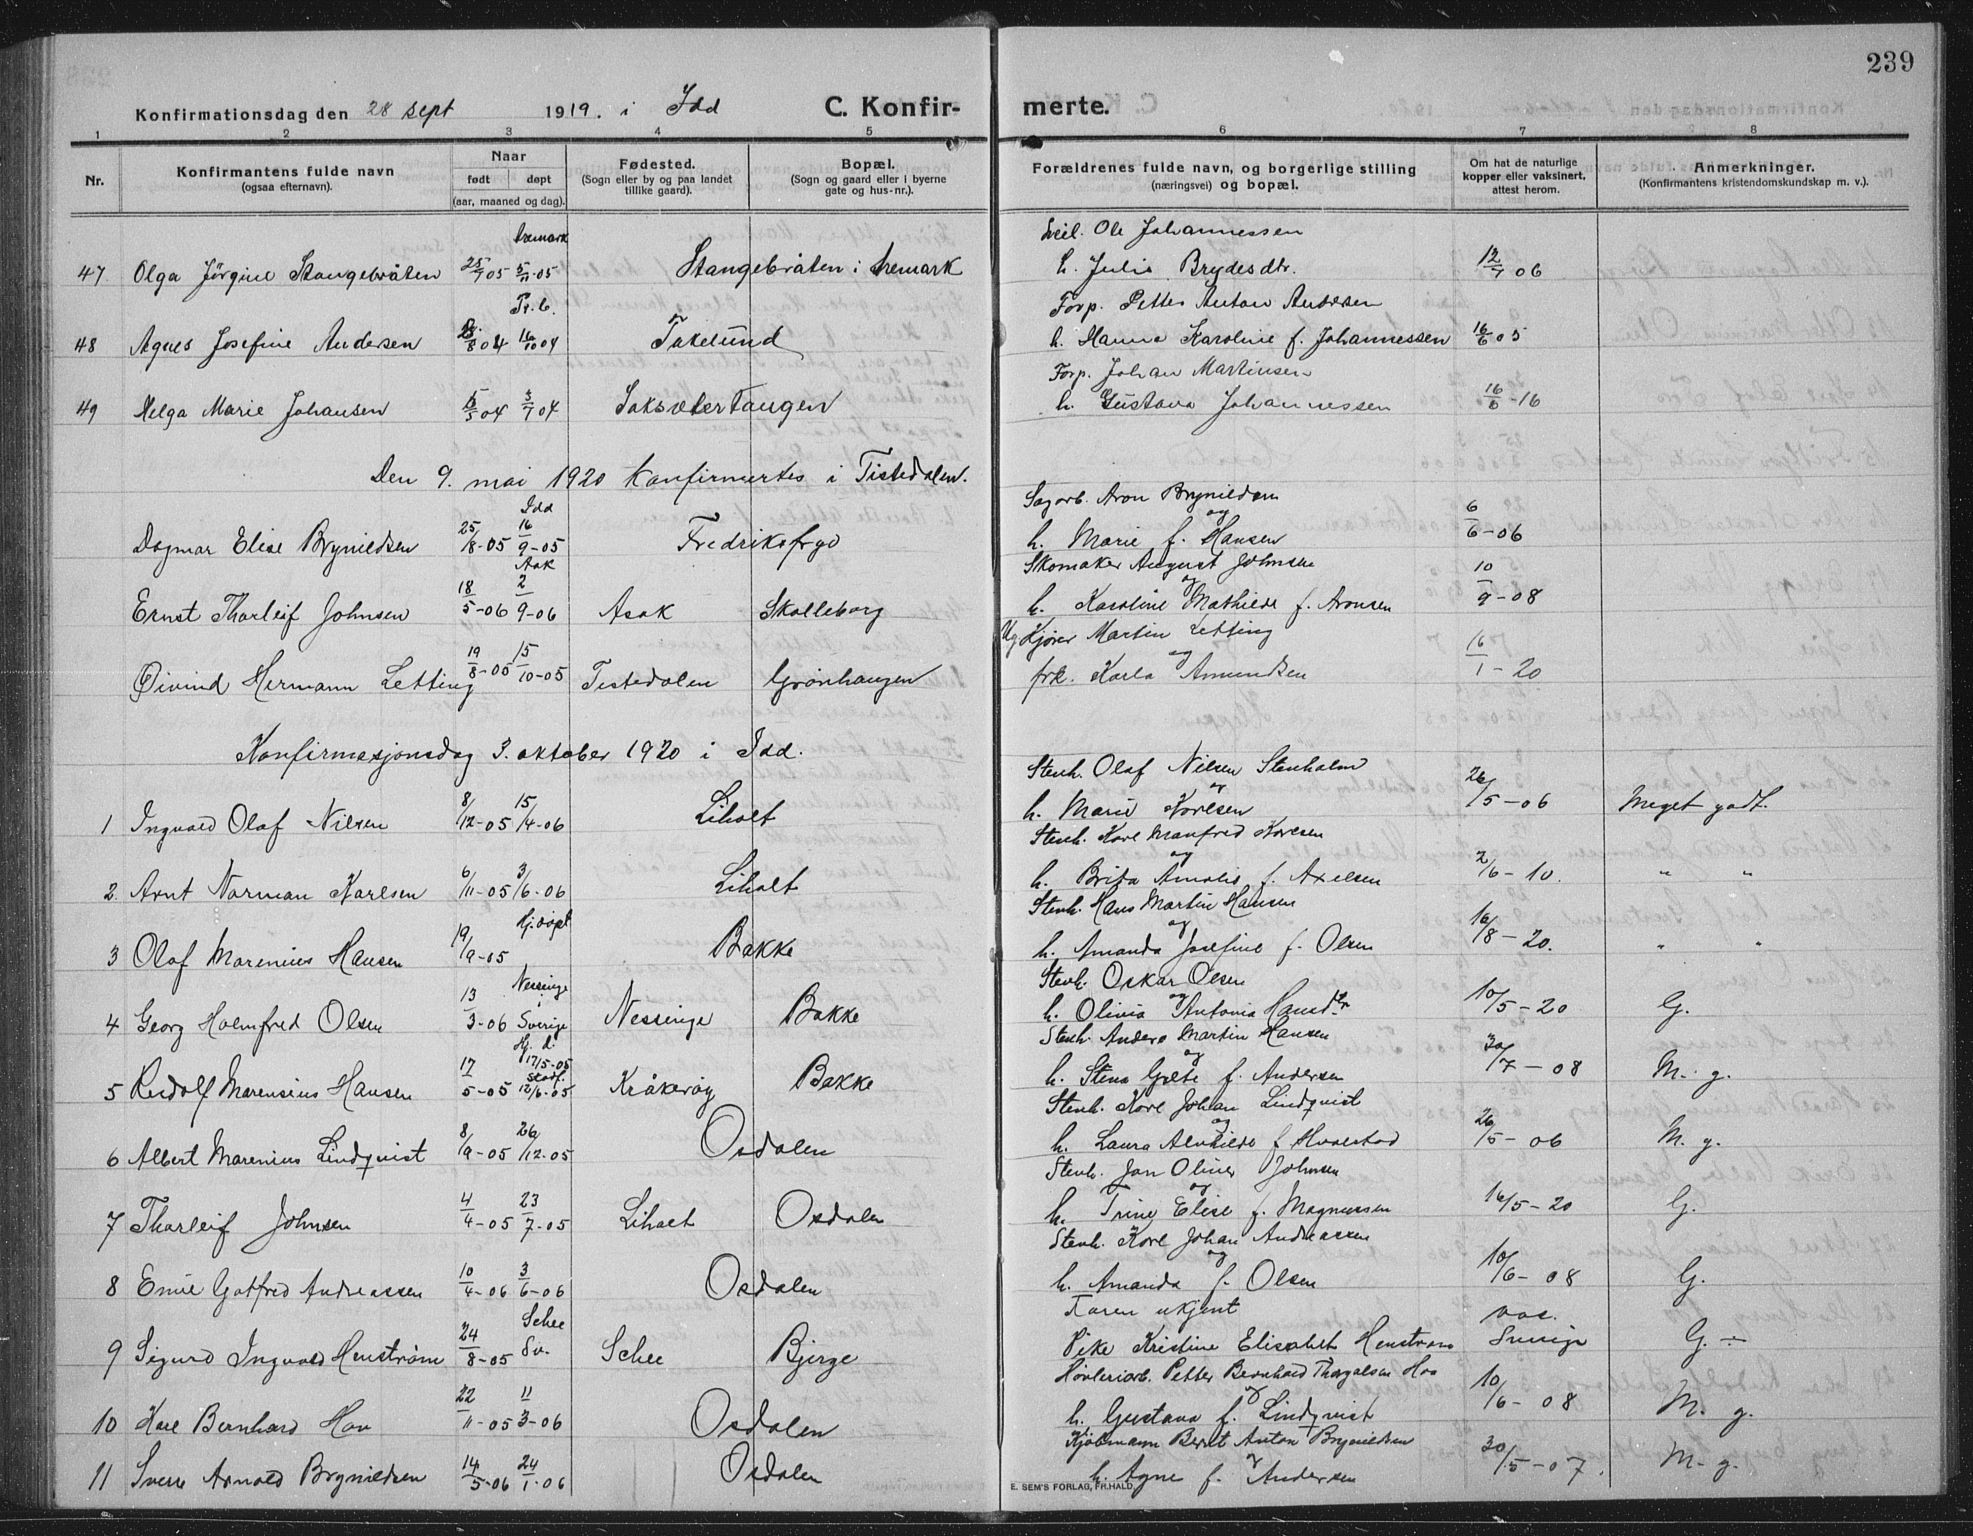 239
Konfirmationsdag den 28 sept 1919. i Idd C. Konfir- merte.
1 2 3 4 5 6 7 8
Nr. Konfirmantens fulde navn (ogsaa efternavn). Naar født døpt (aar, maaned og dag). Fødested. (Sogn eller by og paa landet tillike gaard). Bopæl. (Sogn og gaard eller i byerne gate og hus-nr.). Forældrenes fulde navn, og borgerlige stilling (næringsvei) og bopæl. Om hat de naturlige kopper eller vaksinert, attest herom. Anmerkninger. (Konfirmantens kristendomskundskap m. v.).
Aremark Ole Johannessen
47 Olga Jørgine Stangebråten 25/7 05 5/11-05 Stangebråten i Aremark h. Julie Brydesdtr. 12/7 06
Forp. Petter Anton Andersen
48 Agnes Josefine Andersen 04 16/10 04 Takelund h. Hanna Karoline f. Johannessen 16/6 05
Forp. Johan Martinsen
49 Helga Marie Johansen 04 3/7 04 Saksvetertangen h. Gustava Johannessen 16/6-16
Den 9. mai 1920 konfirmertes i Tistedalen.
Idd Sagarb. Aron Brynildsen og
Dagmar Elise Brynildsen 25/8-05 16/9-05 Fredriksfryd h. Marie f. Hansen 6/6-06
Ask Skomaker August Johnsen og
Ernst Tharleif Johnsen 18/5-06 2/9-06 Asak Skolleborg h. Karoline Mathilde f. Aronsen 10/9-08
Ug Kjører Martin Letting og
Øivind Hermann Letting 19/8-05 15/10-05 Tistedalen Grønhaugen frk. Karla Amundsen 16/1-20
Konfirmasjonsdag 3. oktober 1920 i Idd.
Stenh. Olaf Nilsen Stenholm og
1 Ingvald Olaf Nilsen 8/12-05 15/4-06 Liholt h. Marie Karlsen 26/5-06 Meget godt.
Stenh. Karl Manfred Karlsen og
2. Arnt Norman Karlsen 6/11-05 3/6-06 Liholt h. Brita Amalie f. Axelsen 2/6-10. " "
Hj. døpt Stenh. Hans Martin Hansen og
3 Olaf Marenius Hansen 19/9-05 Bakke h. Amanda Josefine f. Olsen 16/8-20. " "
Nessinge i Stenh. Oskar Olsen og
4 Georg Holmfred Olsen 13/3-06 Sverige Nessinge Bakke h. Olivia Antonia Hansdtr 10/5-20 G.
Hj. d. 17/5-05 Stadf. Stenh. Anders Martin Hansen og
5 Rudolf Marensius Hansen 17/5-05 12/6-05 Kråkerøy Bakke h. Stena Grete f. Andersen 30/7-08 M. g.
Stenh. Karl Johan Lindqvist og
6 Albert Marenius Lindqvist 8/9-05 26/12-05 Osdalen h. Laura Alvhilde f. Hvalstad 26/5-06 M. g.
Stenh. Jan Oliver Johnsen og
7 Tharleif Johnsen 4/4-05 23/7-05 Liholt Osdalen h. Trine Elise f. Magnussen 16/5-20 G.
Stenh. Karl Johan Andreassen og
8 Emil Gotfred Andreassen 10/4-06 3/6-06 Osdalen h. Amanda f. Olsen 10/6-08 G.
Schee Faren ukjent vac.
9 Sigurd Ingvald Henstrøm 24/8-05 Sv. Schee Bjerge Pike Kristine Elisabet Henstrøm Sverige G. -
Høvleriarb. Petter Bernhard Thorvalsen Hov og
10 Karl Bernhard Hov 22/11-05 11/3-06 Osdalen h. Gustava f. Lindqvist 10/6-08 M. g.
Kjøbmann Bernt Anton Brynildsen og
11 Sverre Arnold Brynildsen 14/5-06 24/1-06 Osdalen h. Agne f. Andersen 30/5-07. M. g.
E. SEM'S FORLAG, FR.HALD